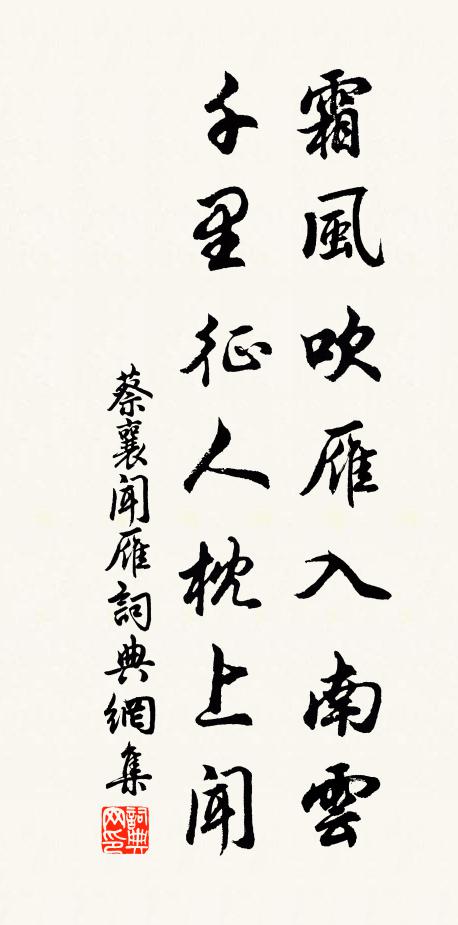 霜風吹雁入南雲
千里征人枕上聞
蔡襄聞雁詞典網集
詞典网印